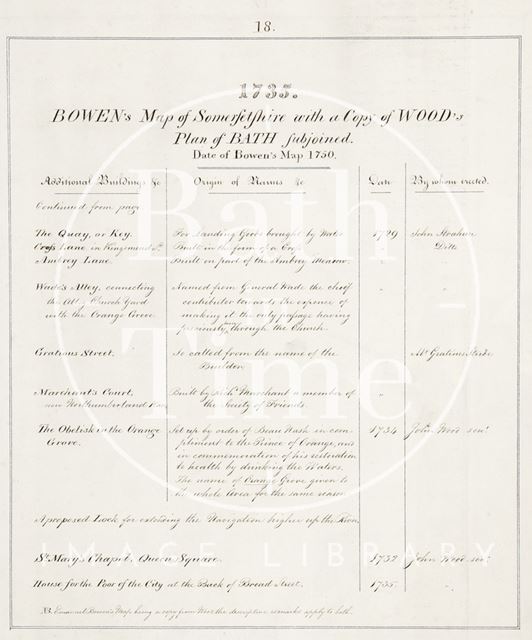 18.
1735.
BOWEN's Map of Somersetshire with a Copy of WOOD's
Plan of BATH subjoined.
Date of Bowen's Map 1750.
Additional Buildings &c Origin of Names &c Date By whom erected.
Continued from page
The Quay, or Key. For Landing Goods brought by Water 1729 John Strahan
Cross Lane in Kingsmead St. Built in the form of a Cross Ditto
Ambrey Lane. Built on part of the Ambrey Meadow.
Wade's Alley, connecting Named from General Wade the chief " "
the Abbey Church Yard contributor towards the expence of
with the Orange Grove making it the only passage having
previously been through the Church.
Gratious Street. So called from the name of the Gratious Stride
Builder.
Marchant's Court, Built by Richd. Marchant a member of "
now Northumberland Place the Society of Friends.
The Obelisk in the Orange Set up by order of Beau Nash in com- 1734 John Wood senr.
Grove. pliment to the Prince of Orange, and
in commemoration of his restoration
to health by drinking the Waters.
The name of Orange Grove given to
the whole Area for the same reason
A proposed Lock for extending the Navigation higher up the River.
St. Mary's Chapel, Queen Square. 1732 John Wood senr.
House for the Poor of the City at the Back of Broad Street. 1735. "
NB. Emanuel Bowen's Map being a copy from Wood the descriptive remarks apply to both.
Bath
in
Time
IMAGE LIBRARY